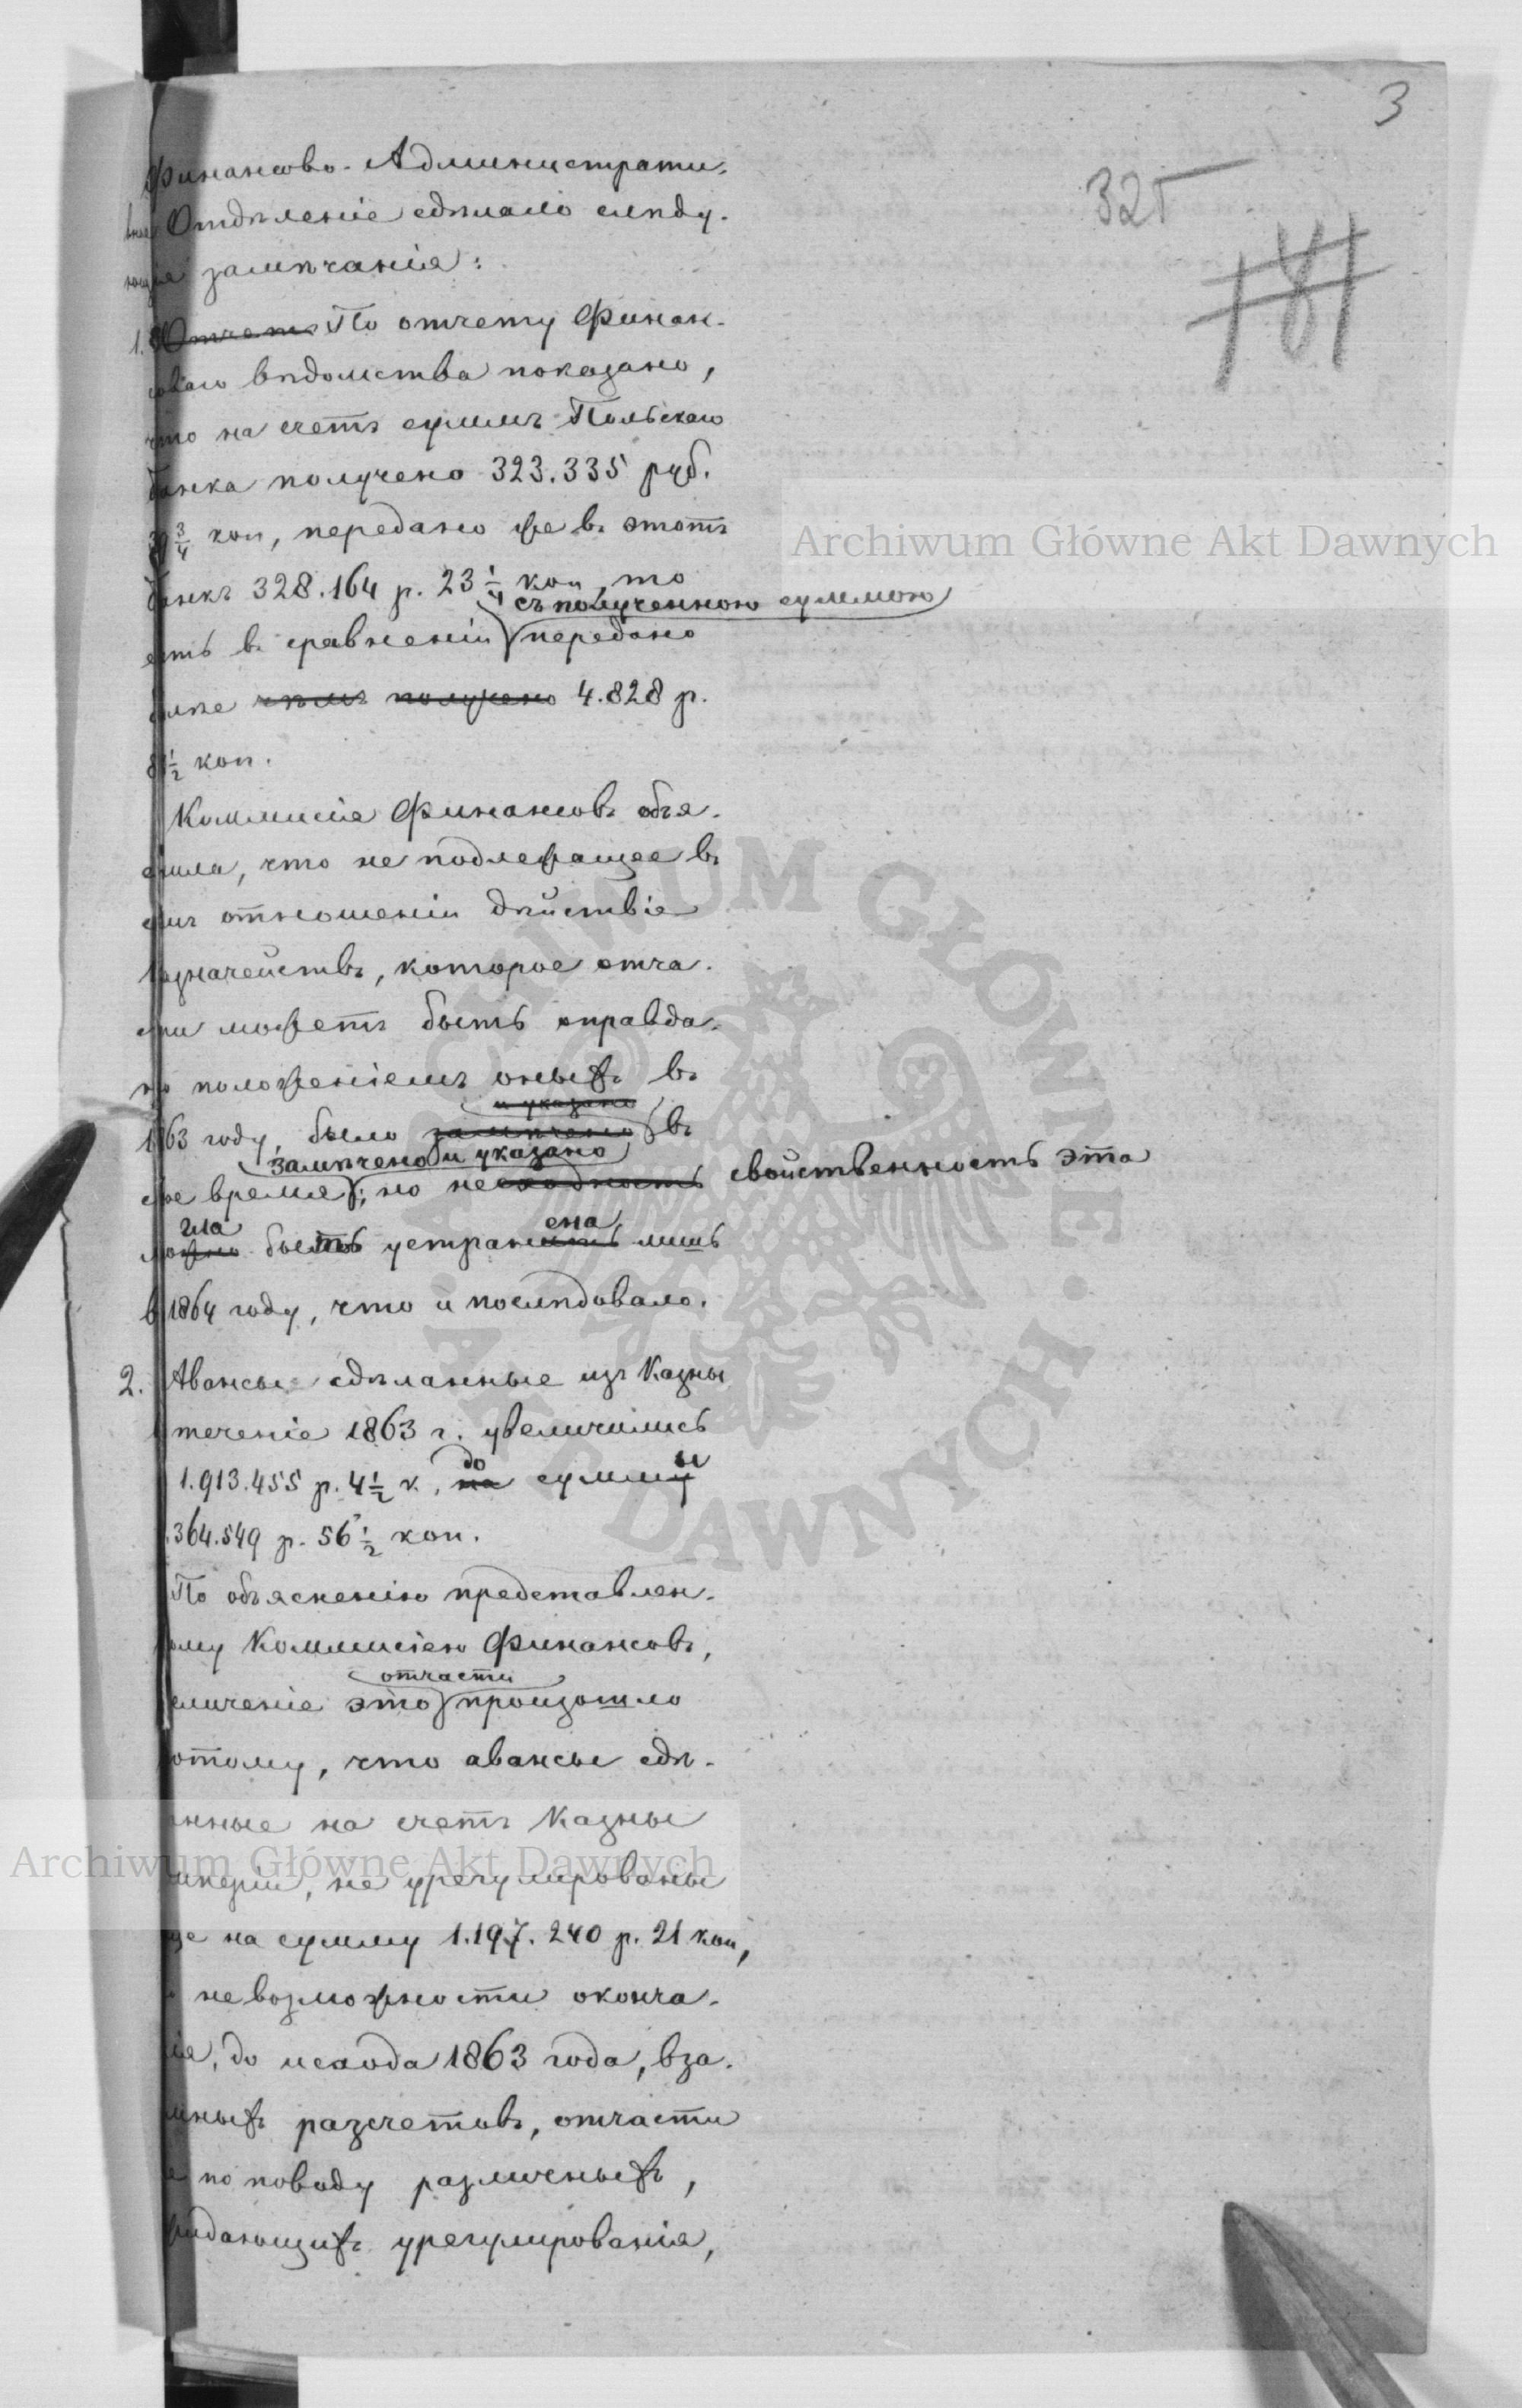 3
325
181
Финансово-Административ-
ное Отдѣленіе сдѣлало слѣду-
ющія замѣчанія:
1. Отчетъ По отчету Финан-
соваго вѣдомства показано,
что на счетъ суммъ Польскаго
банка получено 323.335 руб.
3/4 коп, передано же въ этотъ
банкъ 328.164 р. 23 1/4 коп, то
съ полученною суммою
есть въ сравненіи передано
болѣе чѣмъ получено 4.828 р.
81 1/2 коп.
Коммисія Финансовъ объя-
снила, что не подлежащее въ
семъ отношеніи дѣйствіе
казначействъ, которое отча-
сти можетъ быть оправда-
но положеніемъ оныхъ въ
и указано
1863 году, было замѣчено въ
замѣчено и указано
свое время; но несходность свойственность эта
гла ена
можно быть устранить лишь
въ 1864 году, что и послѣдовало.
2. Авансы сдѣланные изъ Казны
теченіе 1863 г. увеличились
до ы
1.913.455 р. 4 1/2 к, на сумму
.364.549 р. 56 1/2 коп.
По объясненію представлен-
ному Коммисіею Финансовъ,
отчасти
еличеніе это произошло
отому, что авансы сдѣ-
анные на счетъ Казны
Имперіи, не урегулированы
еще на сумму 1.197.240 р. 21 коп,
невозможности оконча-
ія, до исхода 1863 года, вза-
мныхъ разсчетовъ, отчасти
по поводу различныхъ,
жидающихъ урегулированія,
Archiwum Główne Akt Dawnych
Archiwum Główne Akt Dawnych
ARCHIWUM GŁÓWNE · AKT DAWNYCH ·